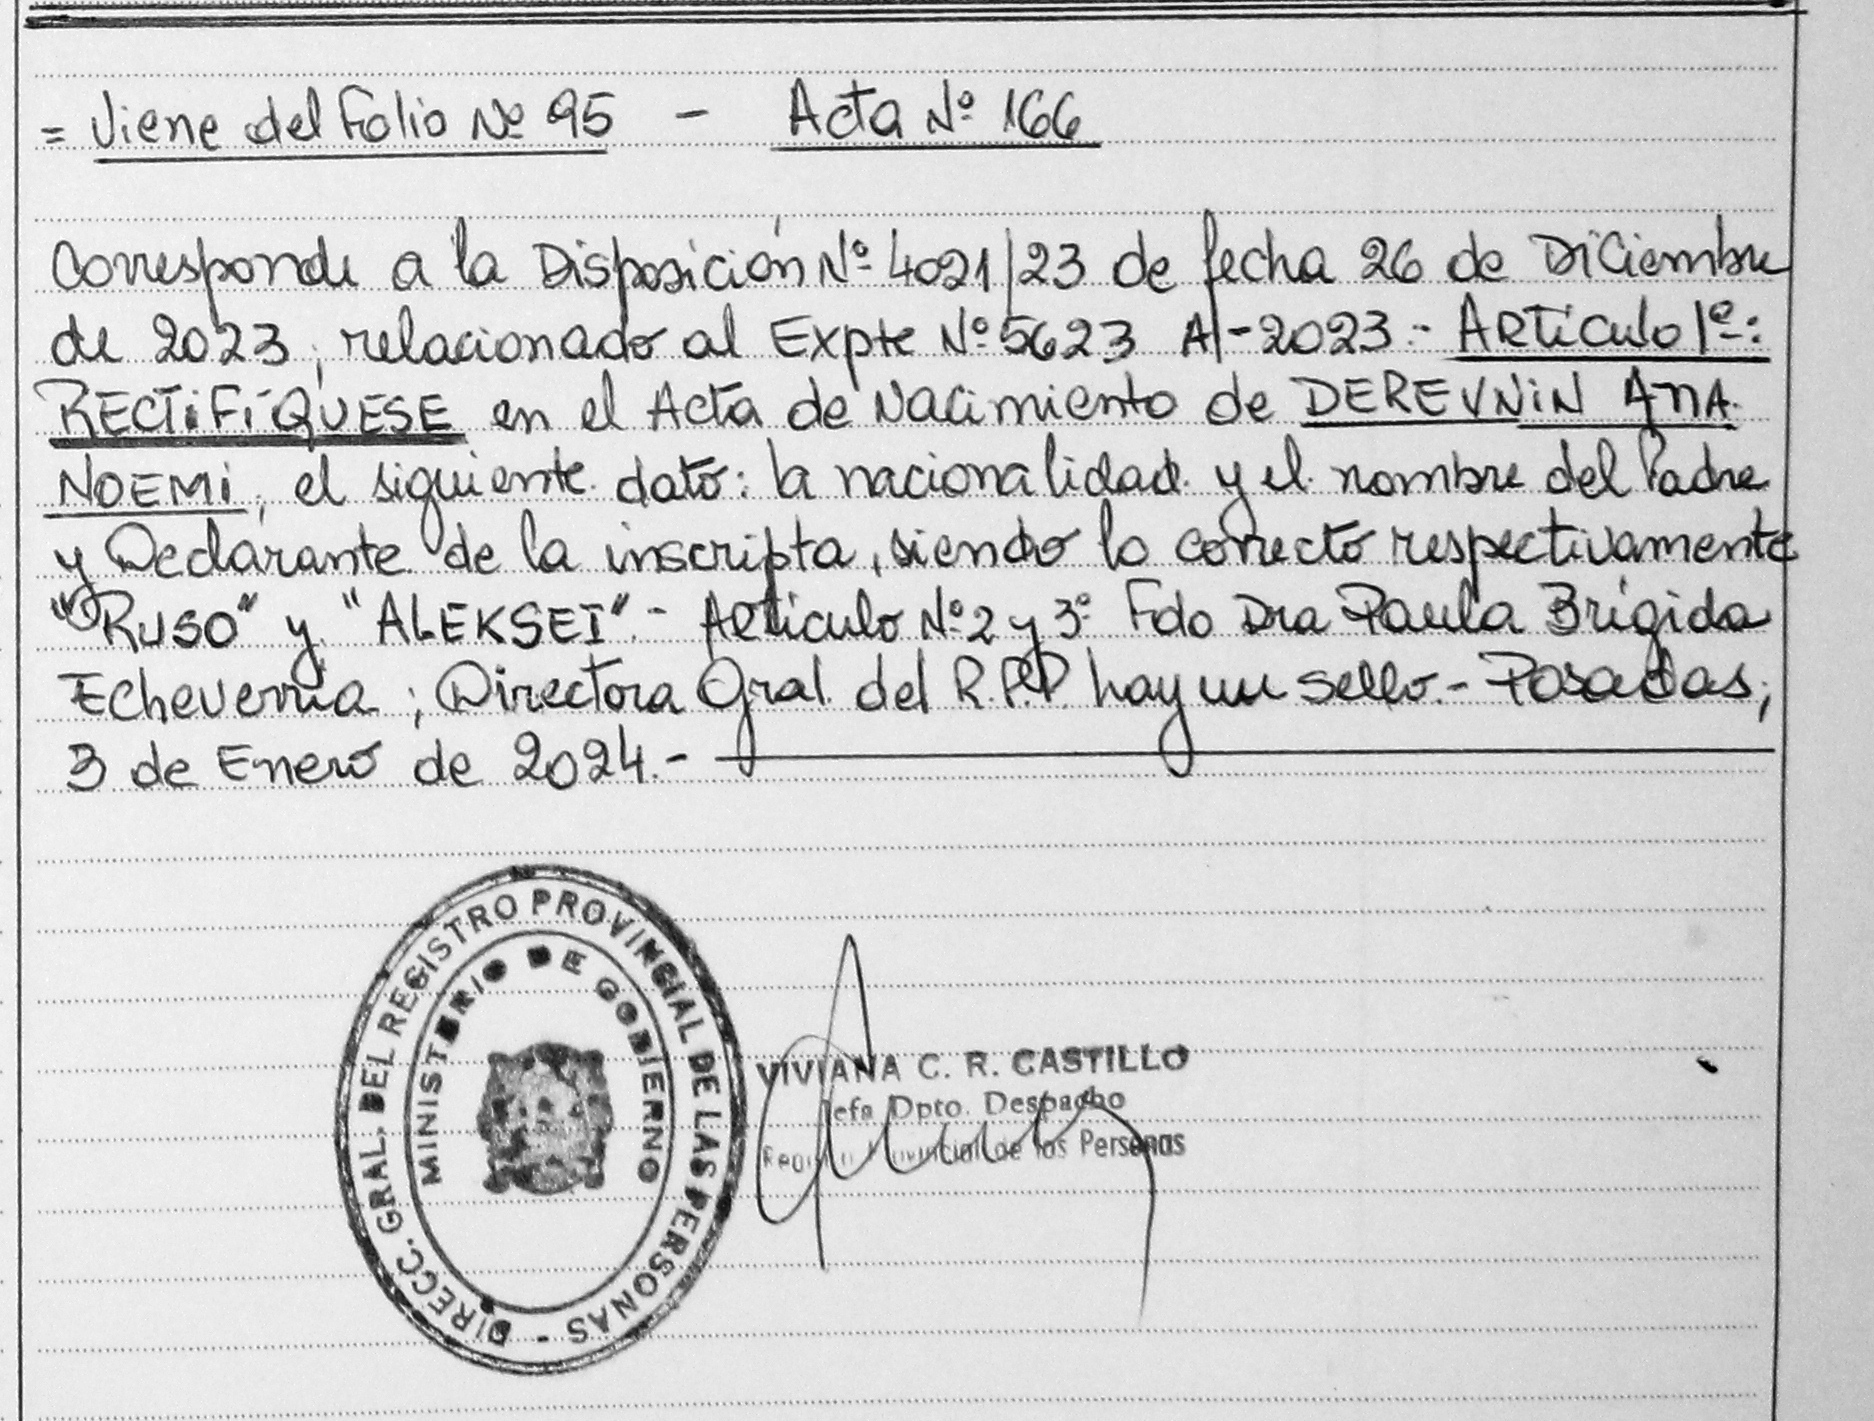 = Viene del Folio Nº 95 - Acta Nº 166
Corresponde a la Disposición Nº 4021/23 de fecha 26 de Diciembre
de 2023, relacionado al Expte Nº 5623 A-2023.- ARTículo 1º:
RECTIFÍQUESE en el Acta de Nacimiento de DEREVNIN ANA
NOEMI, el siguiente dato: la nacionalidad y el nombre del Padre
y Declarante de la inscripta, siendo lo correcto respectivamente
"RUSO" y "ALEKSEI".- Artículo Nº 2 y 3º Fdo Dra Paula Brígida
Echeverria; Directora Gral. del R.P.P. hay un sello.- Posadas,
3 de Enero de 2024.-
DIRECC. GRAL. DEL REGISTRO PROVINCIAL DE LAS PERSONAS -
MINISTERIO DE GOBIERNO
VIVIANA C. R. CASTILLO
Jefa Dpto. Despacho
Registro Provincial de las Personas